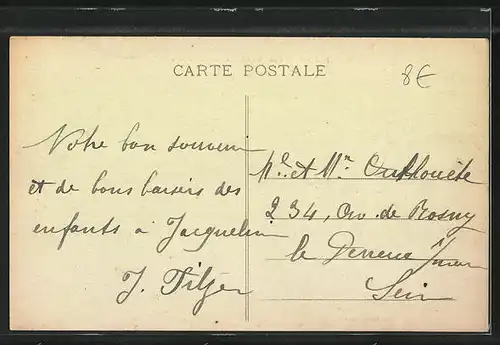 CARTE POSTALE
8€
Notre bon souvenir
et de bons baisers des
enfants à Jacqueline
J. Tilger
et
234, Av. de Rosny
le Perreux s/
Seine